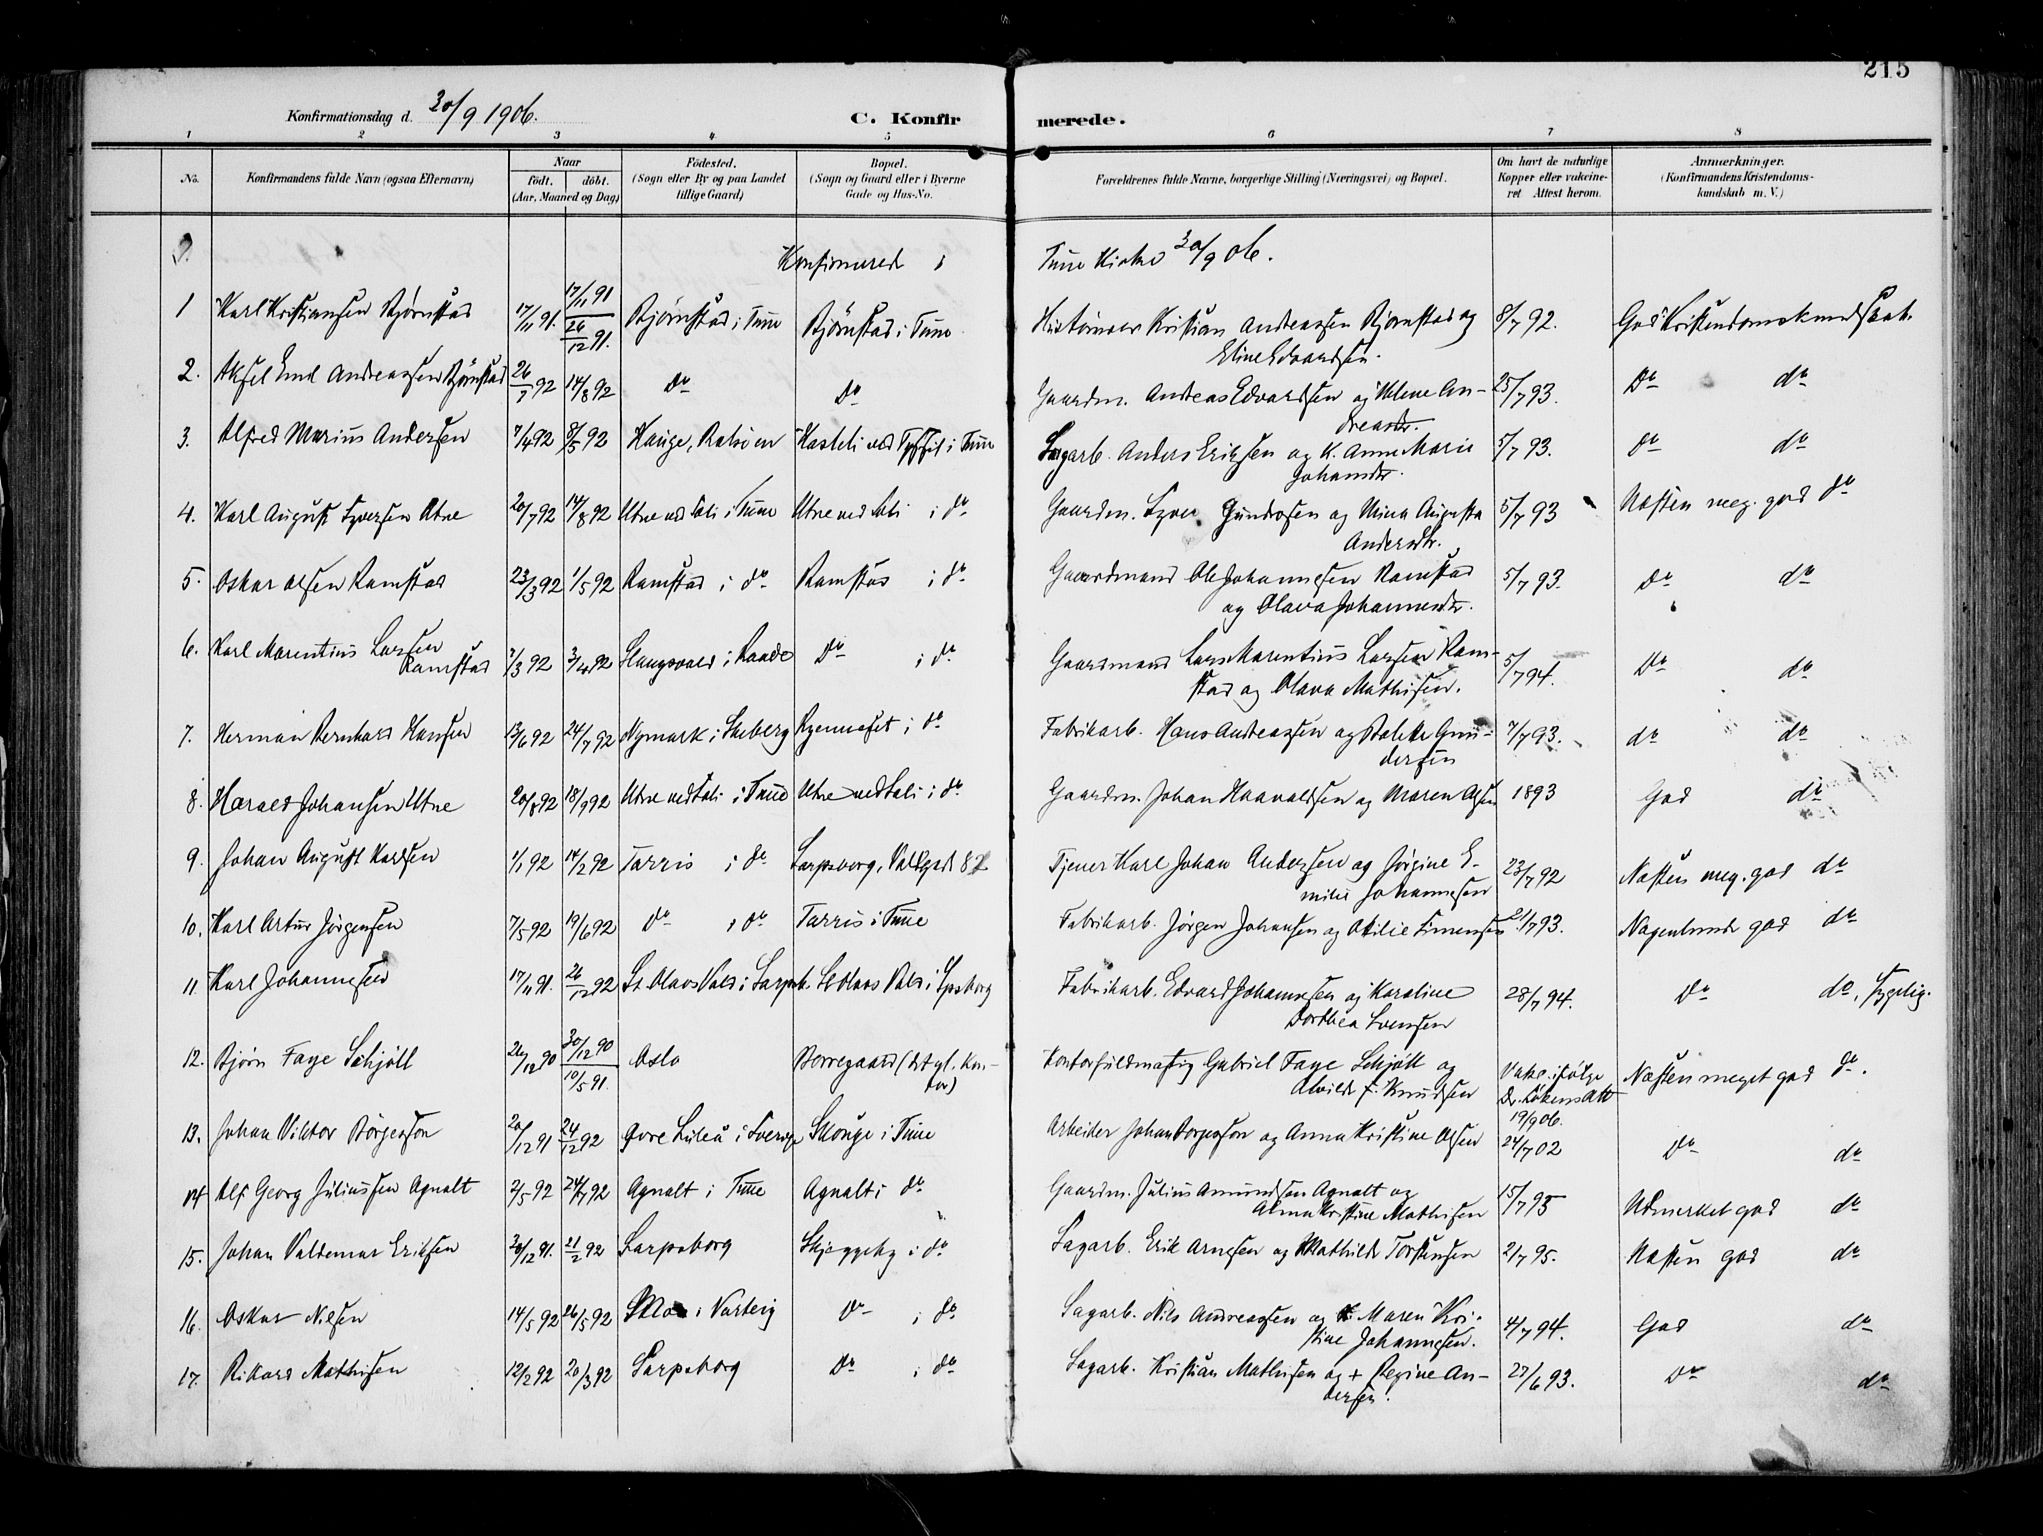 215
Konfirmationsdag d. 30/9 1906.
C. Konfirmerede.
1 2 3 4 5 6 7 8
No.
Konfirmandens fulde Navn (ogsaa Efternavn)
Naar
født. døbt.
(Aar, Maaned og Dag)
Fødested.
(Sogn eller By og paa Landet
tillige Gaard)
Bopæl.
(Sogn og Gaard eller i Byerne
Gade og Hus-No.
Forældrenes fulde Navne, borgerlige Stilling (Næringsvei) og Bopæl.
Om havt de naturlige
Kopper eller vakcine-
ret Attest herom.
Anmærkninger.
(Konfirmandens Kristendoms-
kundskab m. V.)
Konfirmered i Tune Kirke 30/9 06.
1 Karl Kristiansen Bjørnstad 17/11 91. 17/11 91 26/12 91. Bjørnstad i Tune Bjørnstad i Tune Kristian Andreassen Bjørnstad og 8/7 92. God Kristendomskundskab.
Eline Edvardsen.
2. Aksel Emil Andreassen Bjørnstad 26/7 92 14/8 92 do do Gaardm. Andreas Edvardsen og Helene An- 25/7 93. Do do
dreasdr.
3. Alfred Marius Andersen 7/4 92 8/5 92 Hauge, Rolsøen i Tune Sagarb. Anders Eriksen og K. Anne Marie 5/7 93. do do
Johansdr.
4. Karl August Syversen Utne 20/7 92 14/8 92 Utne ved Soli i Tune Utne ved Soli i do Gaardm. Syver Gundersen og Mina Augusta 5/7 93 Næsten meg. god do
Andersdtr.
5. Oskar Olsen Ramstad 23/3 92 1/5 92 Ramstad i do Ramstad i do Gaardmand Ole Johannesen Ramstad 5/7 93. Do do
og Olava Johannesdtr.
6. Karl Marentius Larsen 3/3 92 3/4 92 Slangsvold i Raade Do i do Gaardmand Lars Marentius Larsen Ram- 5/7 94. Do do
Ramstad stad og Olava Mathisen.
7. Herman Bernhard Hansen 13/6 92 24/7 92 Nymark i Skeberg i do Fabrikarb. Hans Andreassen og Gun- 7/7 93. do do
dersen
8. Harald Johansen Utne 20/8 92 18/9 92 Utne ved Soli i Tune Utne ved Soli i do Gaardm. Johan Haavaldsen og Maren Olsen 1893 God do
9. Johan August Karlsen 1/1 92 14/2 92 Tarris i do Sarpsborg, Tjener Karl Johan Andersen og Jørgine E- 23/7 92 Næsten meg. god do
milie Johannesen
10. Karl Artur Jørgensen 7/5 92 19/6 92 do i do Tarris i Tune Fabrikarb. Jørgen Johansen og Otilie Simensen 21/7 93. Nogenlunde god do
11 Karl Johannesen 17/11 91. 26/12 92 St. Olavs Vold i Sarpsb. St. Olavs Vold i Spsborg Fabrikarb. Edvard Johannesen og Karoline 28/7 94. Do do, sygelig.
Dorthea Svensen
12. Bjørn Faye Schjøll 26/12 90 30/12 90 10/5 91. Oslo Borregaard (Det gl. Kon- Kontorfuldmægtig Gabriel Faye Schjøll og Vakc. ifølge Næsten meget god do.
tor) Alvilde f. Knudsen Dr. Løkens Att
19/9 06.
13. Johan Viktor Børgesson 20/12 91 24/12 92 Øvre Luleå i Sverige Skouge i Tune Arbeider Johan Borgesson og Anna Kristine Olsen 24/7 02 Do do
14 Alf Georg Juliussen Agnalt 2/5 92 24/7 92 Agnalt i Tune Agnalt i do Gaardm. Julius Amundsen Agnalt og 15/7 95 Udmerket god do
Anna Kristine Mathisen
15. Johan Valdemar Eriksen 30/12 91. 21/2 92 Sarpsborg Skjeggeby i do Sagarb. Erik Arnesen og Mathilde Torstensen 2/7 95. Næsten god do
16. Oskar Nilsen 14/5 92 26/5 92 i Varteig Do i do Sagarb. Nils Andreassen og Maren Kri- 4/7 94. God do
stine Johannesen.
17. Rikard Mathisen 12/2 92 20/3 92 Sarpsborg Do i do Sagarb. Kristian Mathisen og + Regine An- 27/6 93. Do do
dersen.